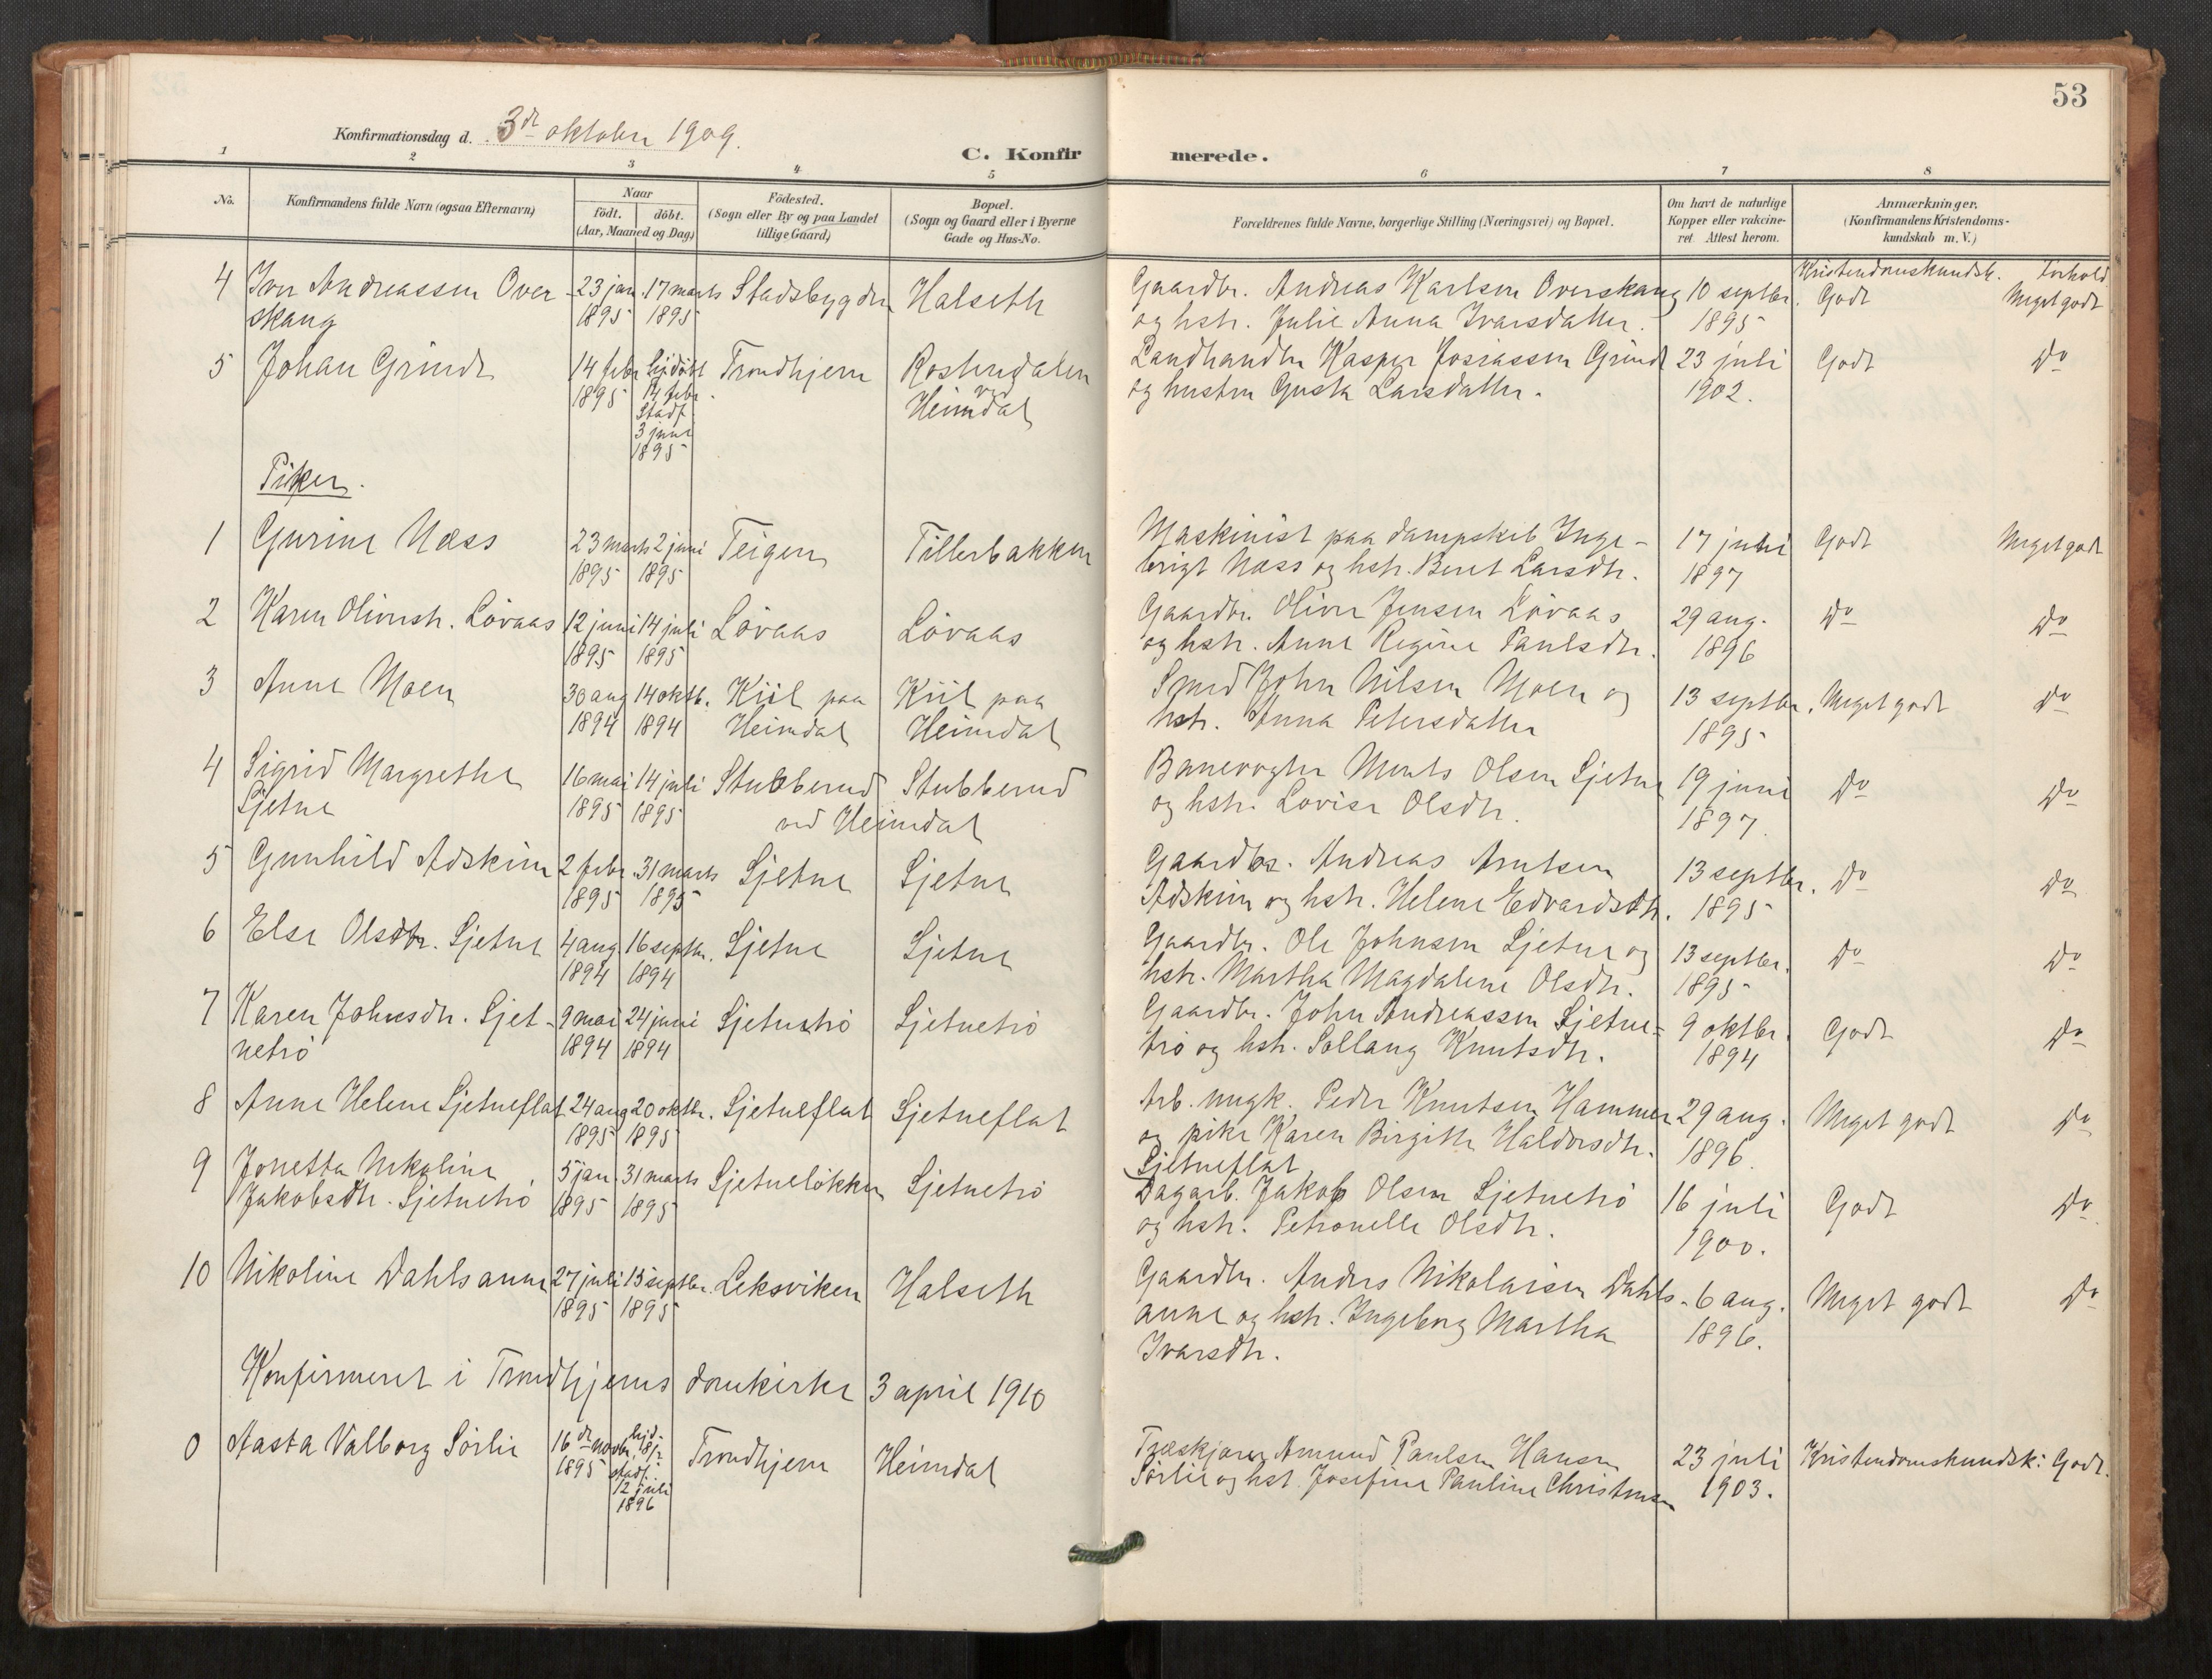 53
Konfirmationsdag d. 3d oktober 1909.
C. Konfirmerede.
1 2 3 4 5 6 7 8
No. Konfirmandens fulde Navn (ogsaa Efternavn) Naar födt. döbt. (Aar, Maaned og Dag) Födested. (Sogn eller By og paa Landet tillige Gaard) Bopæl. (Sogn og Gaard eller i Byerne Gade og Hus-No. Forældrenes fulde Navne, borgerlige Stilling (Næringsvei) og Bopæl. Om havt de naturlige Kopper eller vakcineret. Attest herom. Anmærkninger. (Konfirmandens Kristendomskundskab m. V.)
Kristendomskundsk. Forhold
4 Iver Andreassen Over- 23 jan 17 marts Stadsbygden Halseth Gaardbr. Andreas Karlsen Overskaug 10 septbr. Godt Meget godt
skaug 1895 1895 og hstr. Julie Anna Ivarsdatter. 1895
5 Johan Grindt 14 febr hjdöbt Trondhjem Rostendalen Landhandler Kasper Josiassen Grindt 23 juli Godt Do
1895 14 febr. ved og hustru Gusta Larsdatter. 1902.
Stadf. Heimdal
3 juni
1895
Piker.
1 Gurine Næss 23 marts 2 juni Teigen Tillerbakken Maskinist paa dampskib Inge- 17 juli Godt Meget godt
1895 1895 brigt Næss og hstr. Beret Larsdtr. 1897
2 Karen Oliversdtr. Lövaas 12 juni 14 juli Lövaas Lövaas Gaardbr. Oliver Jensen Lövaas 29 aug. Do Do
1895 1895 og hstr. Anne Regine Paulsdtr. 1896
3 Anne Moen 30 aug 14 oktb. Kiil paa Kiil paa Smed John Nilsen Moen og 13 septbr. Meget godt Do
1894 1894 Heimdal Heimdal hstr. Anna Petersdatter 1895
4 Sigrid Margrethe 16 mai 14 juli Stubberud Stubberud Banevogter Ments Olsen Sjetne 19 juni Do Do
Sjetne 1895 1895 ved Heimdal og hstr. Lovise Olsdtr. 1897.
5 Gunhild Adskim 2 febr. 31 marts Sjetne Sjetne Gaardbr. Andreas Arntsen 13 septbr. Do Do
1895 1895 Adskim og hstr. Helene Edvardsdtr. 1895
6 Else Olsdtr. Sjetne 4 aug. 16 septbr. Sjetne Sjetne Gaardbr. Ole Johnsen Sjetne og 13 septbr. Do Do
1894 1894 hstr. Martha Magdalene Olsdtr. 1895
7 Karen Johnsdtr. Sjet- 9 mai 24 juni Sjetnetrö Sjetnetrö Gaardbr. John Andreassen Sjetne- 9 oktbr. Godt Do
netrö 1894 1894 trö og hstr. Sollaug Knutsdtr. 1894
8 Anne Helene Sjetneflat 24 aug 20 oktbr. Sjetneflat Sjetneflat Arb. ungk. Peder Knutsen Hammer 29 aug. Meget godt Do
1895 1895 og pike Karen Birgitte Haldorsdtr. 1896.
Sjetneflat
9 Jonetta Nikoline 5 jan. 31 marts Sjetnelökken Sjetnetrö Dagarb. Jakob Olsen Sjetnetrö 16 juli Godt Do
Jakobsdtr. Sjetnetrö 1895 1895 og hstr. Petronelle Olsdtr. 1900.
10 Nikoline Dahlsaune 27 juli 15 septbr. Leksviken Halseth Gaardbr. Anders Nikolaisen Dahls- 6 aug. Meget godt Do
1895 1895 aune og hstr. Ingeborg Martha 1896.
Ivarsdtr.
Konfirmeret i Trondhjems domkirke 3 april 1910
0 Aasta Valborg Sörlie 16de novbr. hjd. Trondhjem Heimdal Træskjærer Amund Paulsen Hansen 23 juli Kristendomskundsk: Godt.
1895 stadf. Sörlie og hst. Josefine Pauline Christensen 1903.
12 juli
1896